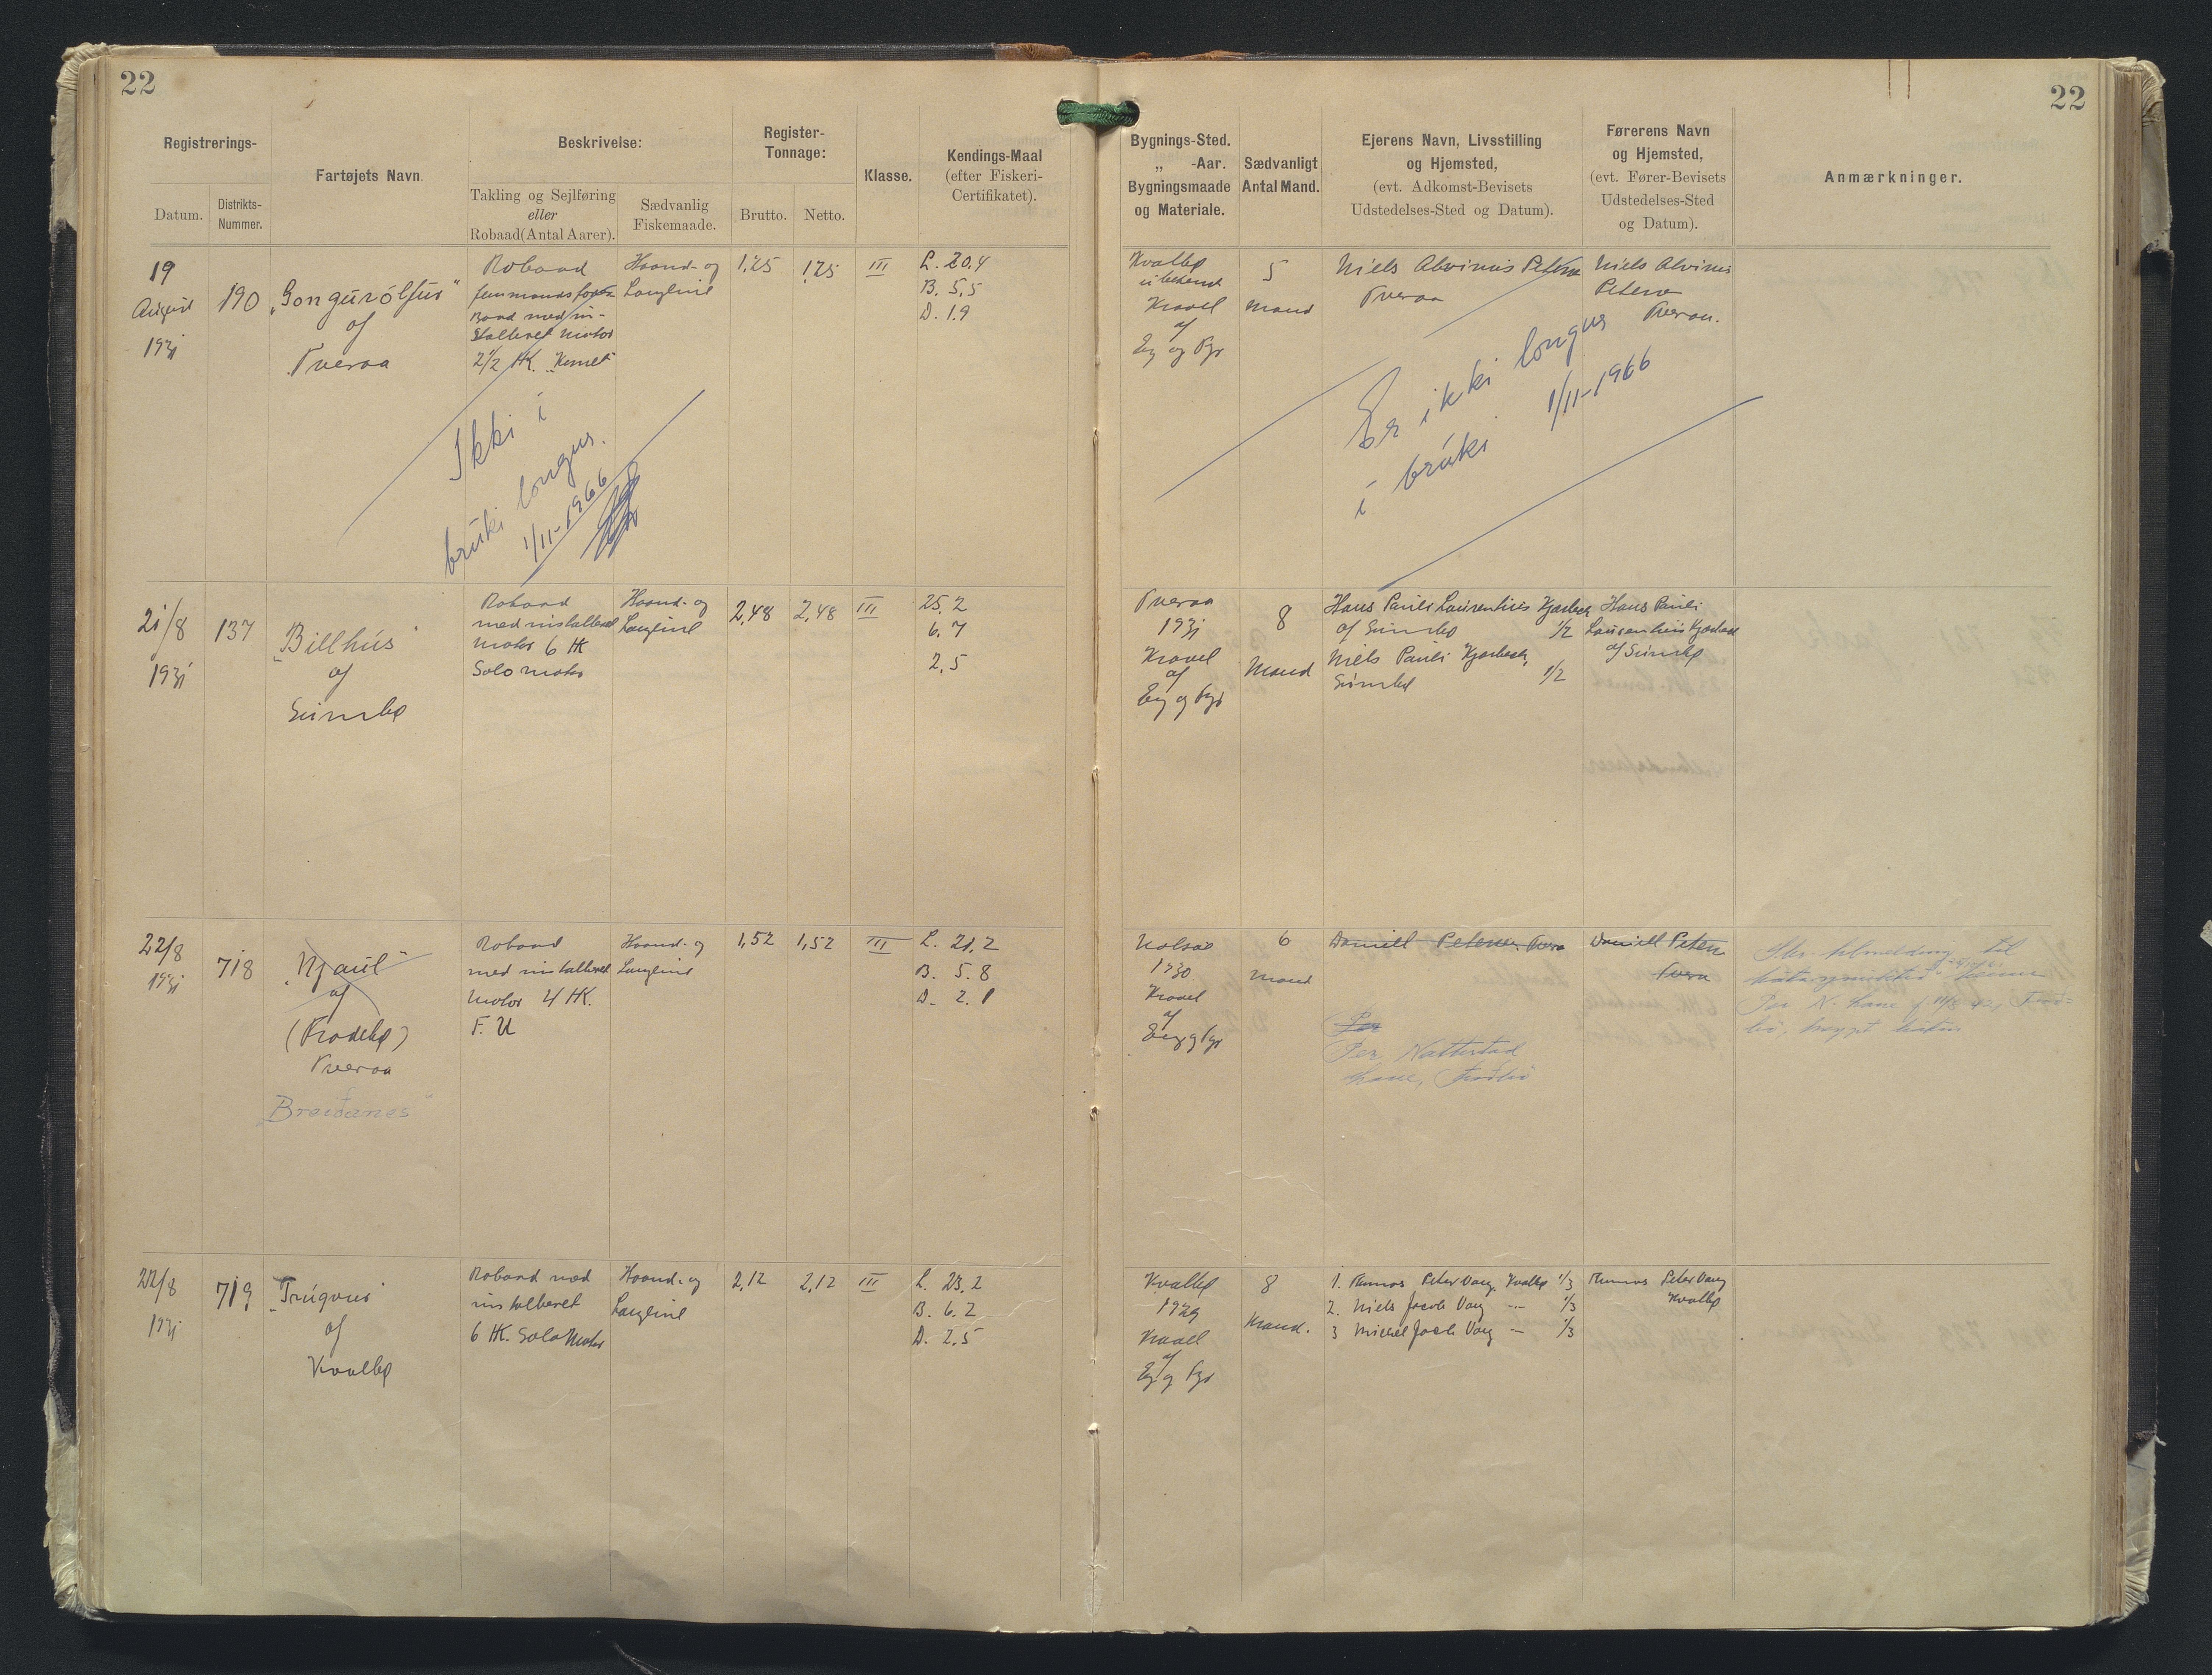 22
22
Registrerings-
Datum.
Distrikts-
Nummer.
Fartøjets Navn.
Beskrivelse:
Takling og Sejlføring
eller
Robaad (Antal Aarer).
Sædvanlig
Fiskemaade.
Register-
Tonnage:
Brutto.
Netto.
Klasse.
Kendings-Maal
(efter Fiskeri-
Certifikatet).
Bygnings-Sted.
„ -Aar.
Bygningsmaade
og Materiale.
Sædvanligt
Antal Mand.
Ejerens Navn, Livsstilling
og Hjemsted,
(evt. Adkomst-Bevisets
Udstedelses-Sted og Datum).
Førerens Navn
og Hjemsted,
(evt. Fører-Bevisets
Udstedelses-Sted
og Datum).
Anmærkninger.
19
August
1931
190
„Gongurólfur“
af
Tveraa
Robaad
femmandsfarer
Baad med in-
stalleret motor
2 1/2 HK.
Haand- og
Langline
1,25
1,25
III
L. 20,4
B. 5,5
D. 1,9
Kvalbø
ubekendt
Kravel
af
Eg og Fyr
5
Mand
Niels Alvinus Petersen
Tveraa
Niels Alvinus
Petersen
Tveraa.
Ikki í
brúki longur.
1/11-1966
Er ikki longur
í brúki 1/11-1966
21/8
1931
137
„Billhús“
af
Sumbø
Robaad
med installeret
motor 6 HK
Solo motor
Haand- og
Langline
2,48
2,48
III
25,2
6,7
2,5
Tveraa
1931
Kravel
af
Eg og Fyr
8
Mand
Hans Pauli Laurentius Kjærbech
af Sumbø 1/2
Niels Pauli Kjærbech,
Sumbø 1/2
Hans Pauli
Laurentius Kjærbech
af Sumbø
22/8
1931
718
„Njaul“
af
(Frodebø)
Tveraa
„Breiðanes“
Robaad
med installeret
motor 4 HK.
F. U
Haand- og
Langline
1,52
1,52
III
L. 21,2
B. 5.8
D. 2.1
1930
Kravel
af
Eg og Fyr
6
Mand
Daniell Petersen, Tveraa
Per
Per Nattestad
Lane, Froðbø
Daniell Petersen
Tveraa
22/8
1931
719
„Trúgvur“
af
Kvalbø
Robaad med
installeret
6 HK. Solo Motor
Haand- og
Langline
2,12
2,12
III
L. 23,2
B. 6.2
D. 2.5
Kvalbø
1929
Kravel
af
Eg og Fyr
8
Mand.
1. Thomas Peter Vang, Kvalbø 1/3
2. Niels Jacob Vang — 1/3
3 Michel Jacob Vang — 1/3
Thomas Peter Vang
Kvalbø